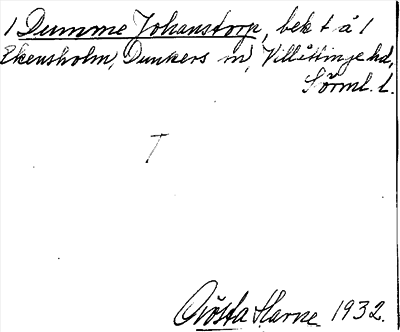 1 Dumme Johanstorp, bek t å 1
Ekensholm, Dunkers sn, Villåttinge hd,
Sörml. l.
T
Gösta Harne 1932.